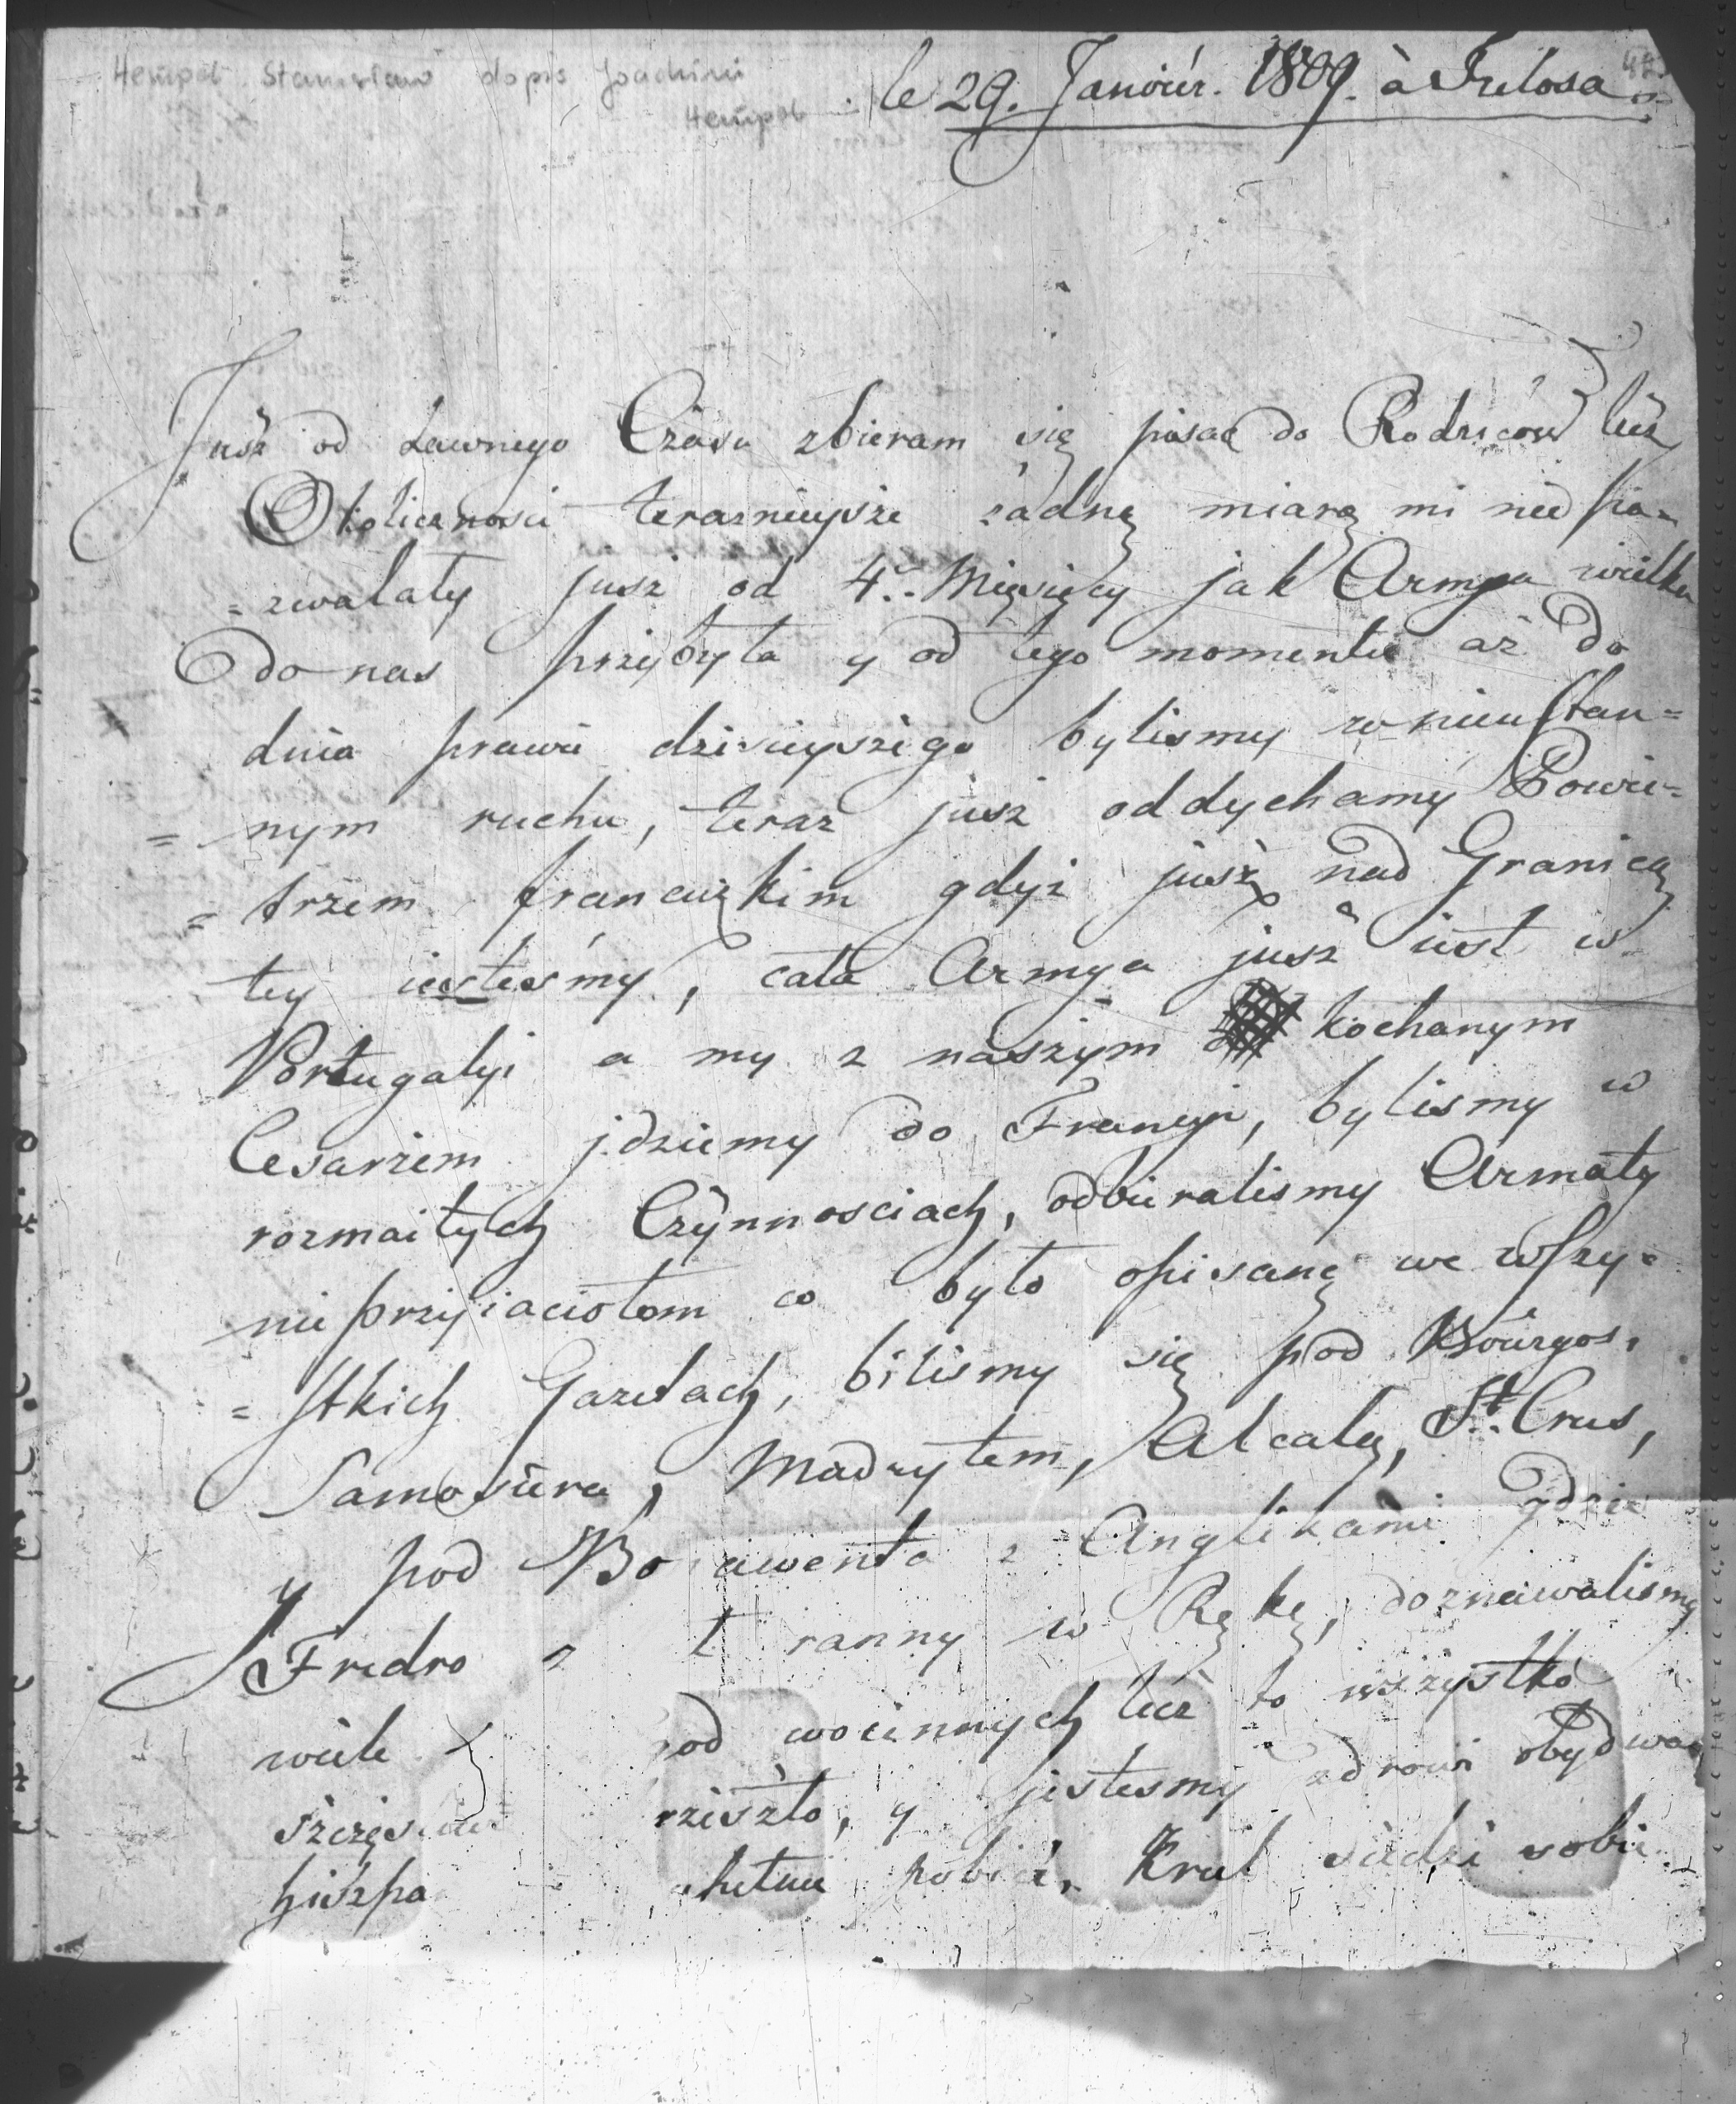 Hempel Stanisław dopis Joachima
Hempla
le 29. Janviér. 1809. à Tulosa
Jusz od dawnego Czasu zbieram się pisać do Rodziców lecz
Okolicznosci terazneysze żadną miarą mi nie po=
=zwalały jusz od 4. Mięsięcy jak Armya wielka
do nas przybyła y od tego momentu aż do
dnia prawie dzisieyszego bylismy w nieustan=
=nym ruchu, teraz jusz oddychamy Powie=
=trzem francuzkim gdyż jusz nad Granicą
tey iestesmy, cała Armya jusz iest w
Portugalyi a my z naszym kochanym
Cesarzem jdziemy do Francyi, bylismy w
rozmaitych Czynnosciach, odbieralismy Armaty
nieprzyiaciołom co było opisane we wszy=
=stkich Gazetach, bilismy się pod Bourgos,
Samosiera, Madrytem, Alcalą, St. Crus,
y pod Bo awenta z Anglikami gdzie
Fredro z t ranny w Rękę, doznawalismy
wiele od woiennych lecz to wszystko
szczęsliwie rzeszło, y jestesmy zdrowi obydwa
hiszpa pobici, Krul siedzi sobie